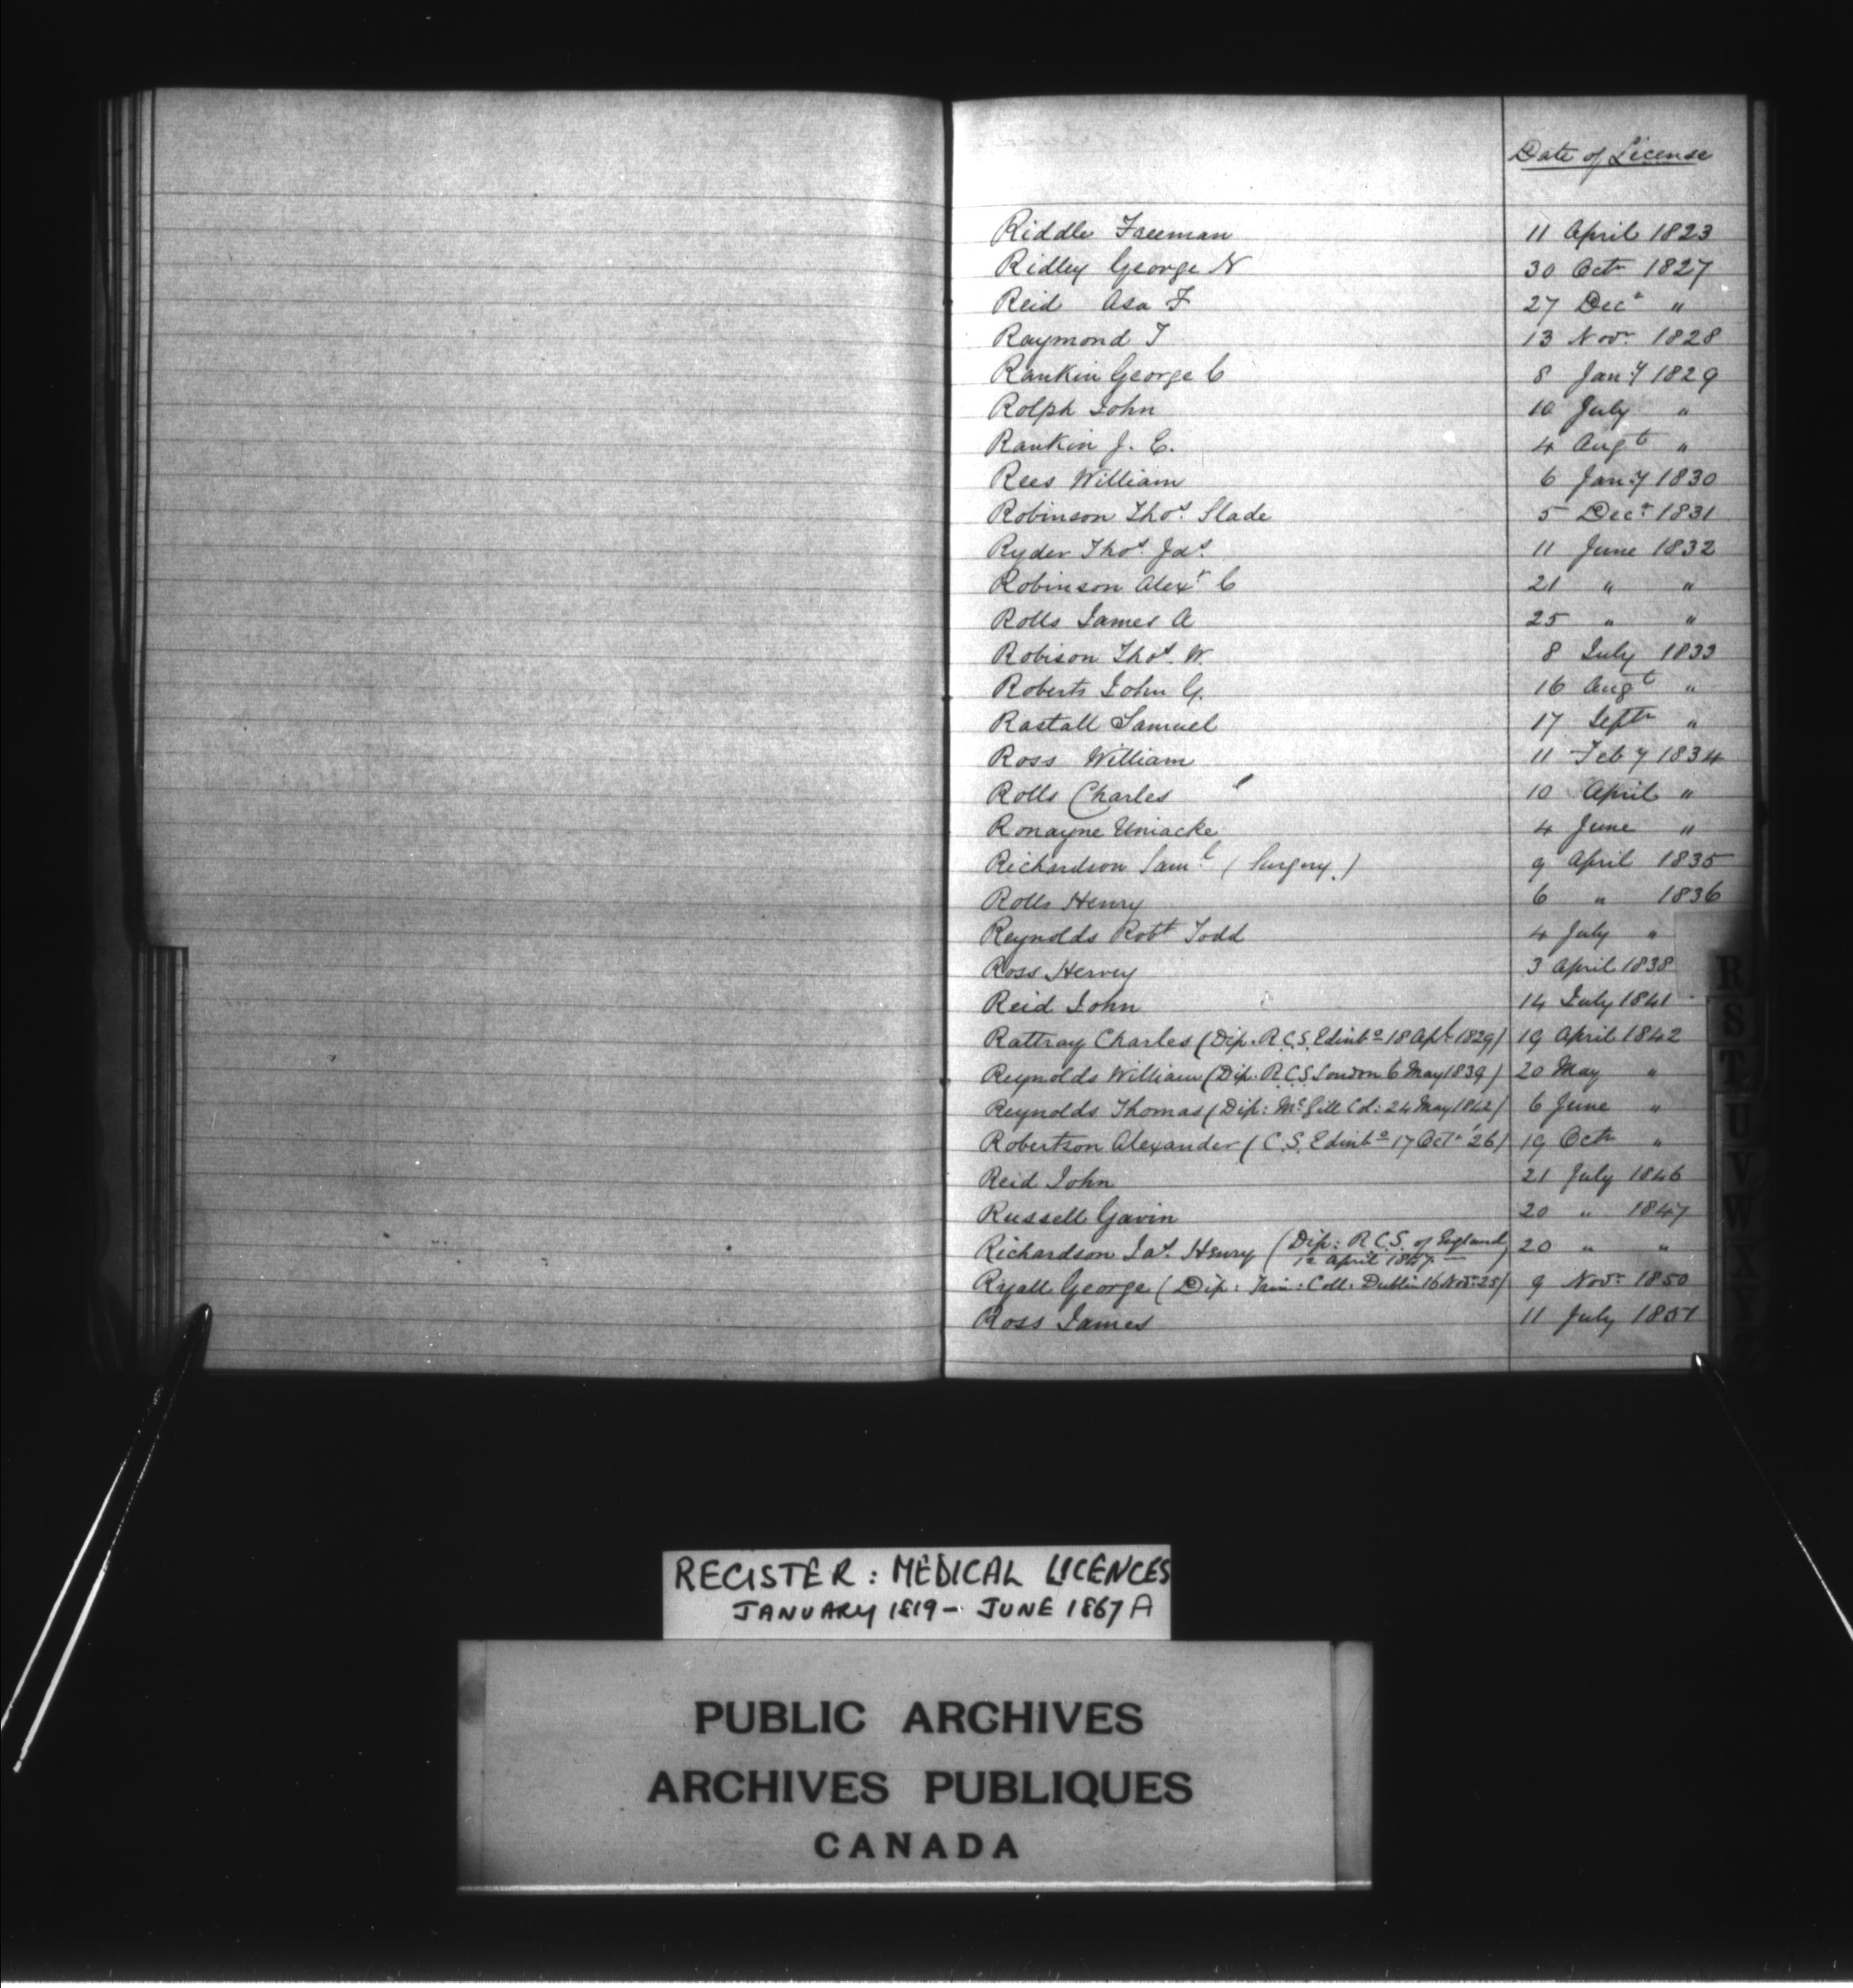 Date of License
Riddle Freeman 11 April 1823
Ridley George N 30 Octr 1827
Reid Asa F 27 Decr "
Raymond T 13 Novr 1828
Rankin George C 8 Jany 1829
Rolph John 10 July "
Rankin J. C. 4 Augt "
Rees William 6 Jany 1830
Robinson Thos. Slade 5 Decr 1831
Ryder Thos. Jas. 11 June 1832
Robinson Alexr. C 21 " "
Rolls James A 25 " "
Robison Thos. W. 8 July 1833
Roberts John G. 16 Augt "
Rastall Samuel 17 Septr "
Ross William 11 Feby 1834
Rolls Charles 10 April "
Ronayne Uniacke 4 June "
Richardson Saml. (Surgery.) 9 April 1835
Rolls Henry 6 " 1836
Reynolds Robt Todd 4 July "
Ross Hervey 3 April 1838
Reid John 14 July 1841
Rattray Charles (Dip. R.C.S. Edinbo 18 Apl. 1829) 19 April 1842
Reynolds William (Dip. R.C.S. London 6 May 1839) 20 May "
Reynolds Thomas (Dip: McGill Col: 24 May 1842) 6 June "
Robertson Alexander (C.S. Edinbo 17 Octr '26) 19 Octr "
Reid John 21 July 1846
Russell Gavin 20 " 1847
Richardson Jas. Henry (Dip: R.C.S. of England, 20 " "
12 April 1847.
Ryall George (Dip: Trin: Coll: Dublin 16 Novr 25) 9 Novr 1850
Ross James 11 July 1851
R
S
T
U
V
W
X
Y
Z
REGISTER: MEDICAL LICENCES
JANUARY 1819 - JUNE 1867 A
PUBLIC ARCHIVES
ARCHIVES PUBLIQUES
CANADA